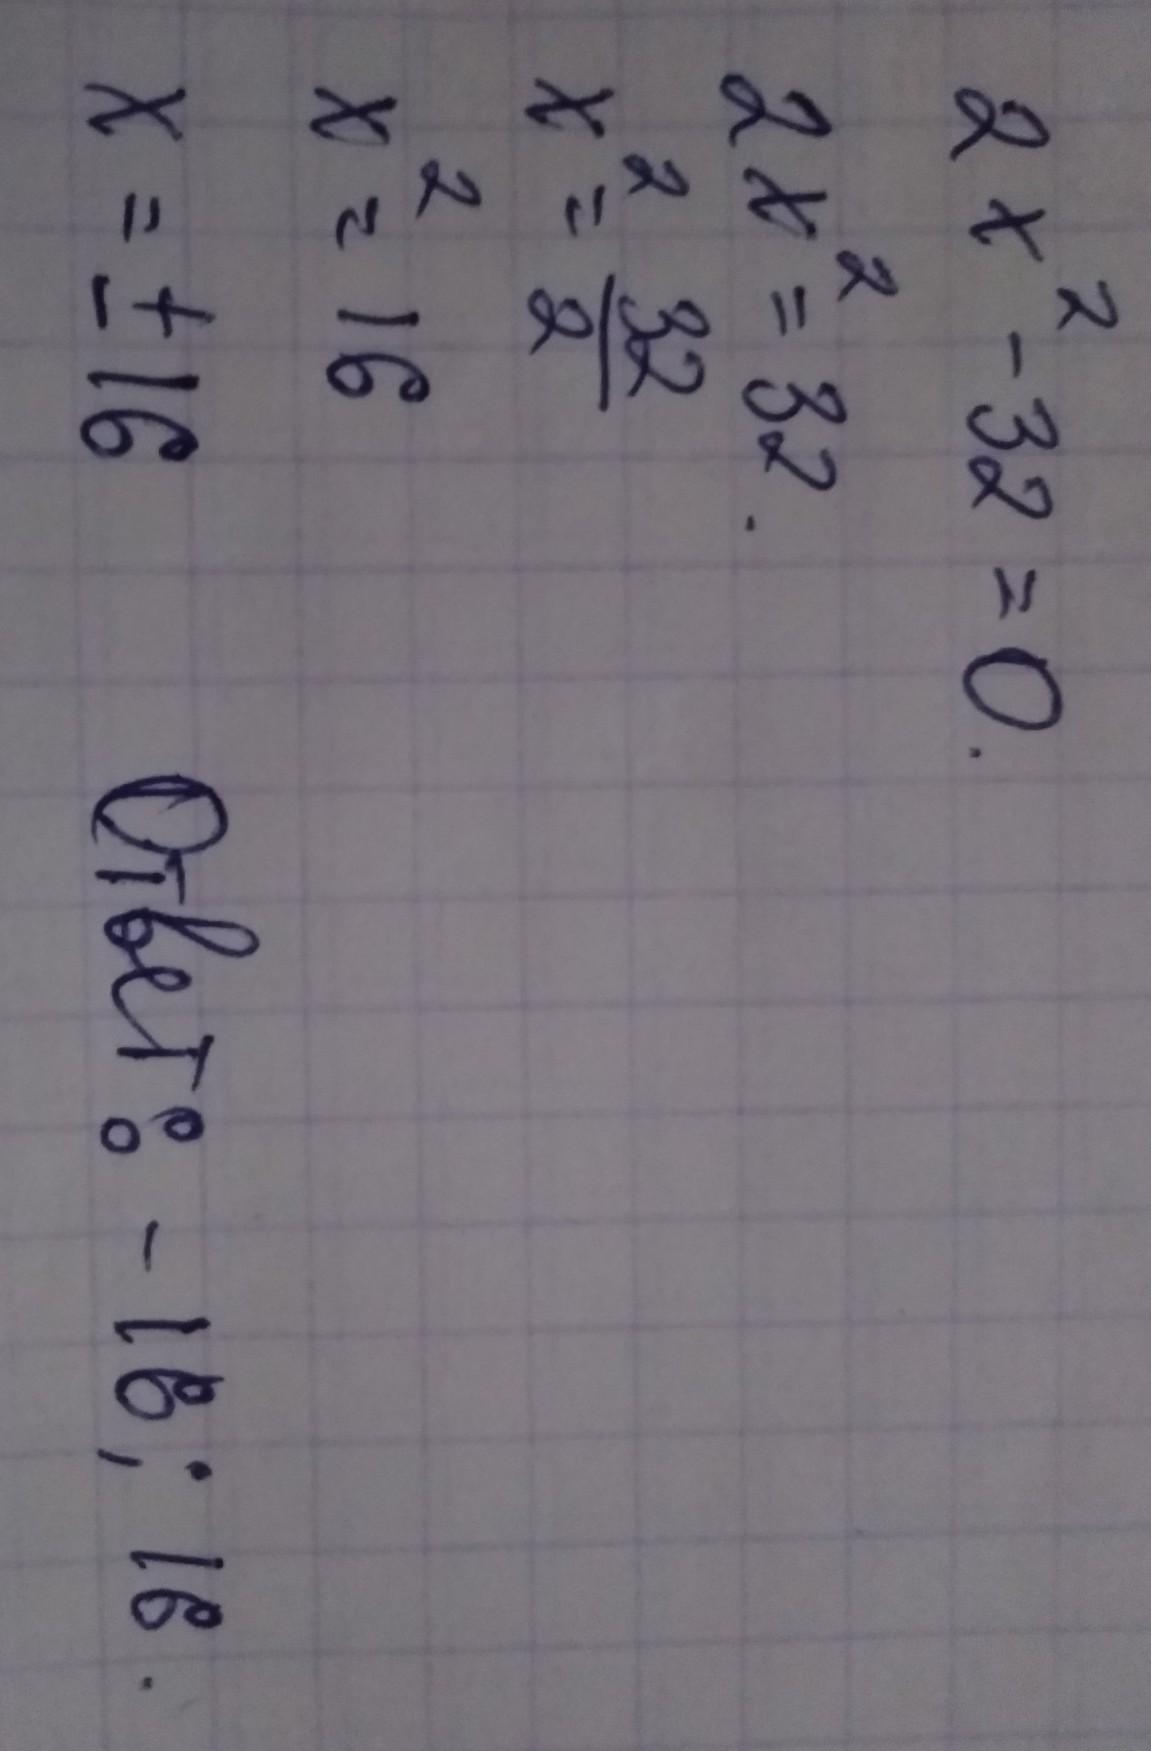 2x² - 32 = 0.
2x² = 32.
x² = 32/2
x² = 16
x = ±16
Ответ: - 16; 16.